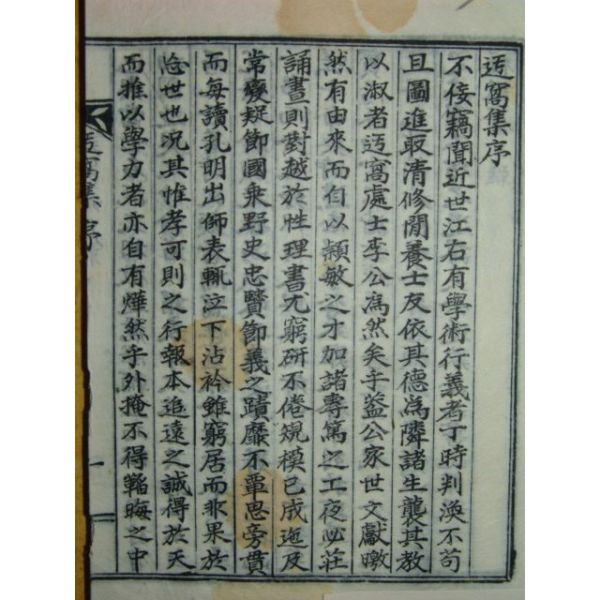 迃窩集序
不佞竊聞近世江右有學術行義者丁時判渙不苟
且圖進取清修閒養士友依其德爲隣諸生襲其教
以淑者迃窩處士李公爲然矣乎盖公家世文獻曒
然有由來而自以穎敏之才加諸專篤之工夜必莊
誦晝則對越於性理書尤窮研不倦䂓模已成迤及
常變疑節國乘野史忠賢節義之蹟靡不覃思旁貫
而每讀孔明出師表輒泣下沾衿雖窮居而非果於
忘世也况其惟孝可則之行報本追遠之誠得於天
而推以學力者亦自有燁然乎外掩不得韜晦之中
迃窩集 序
一